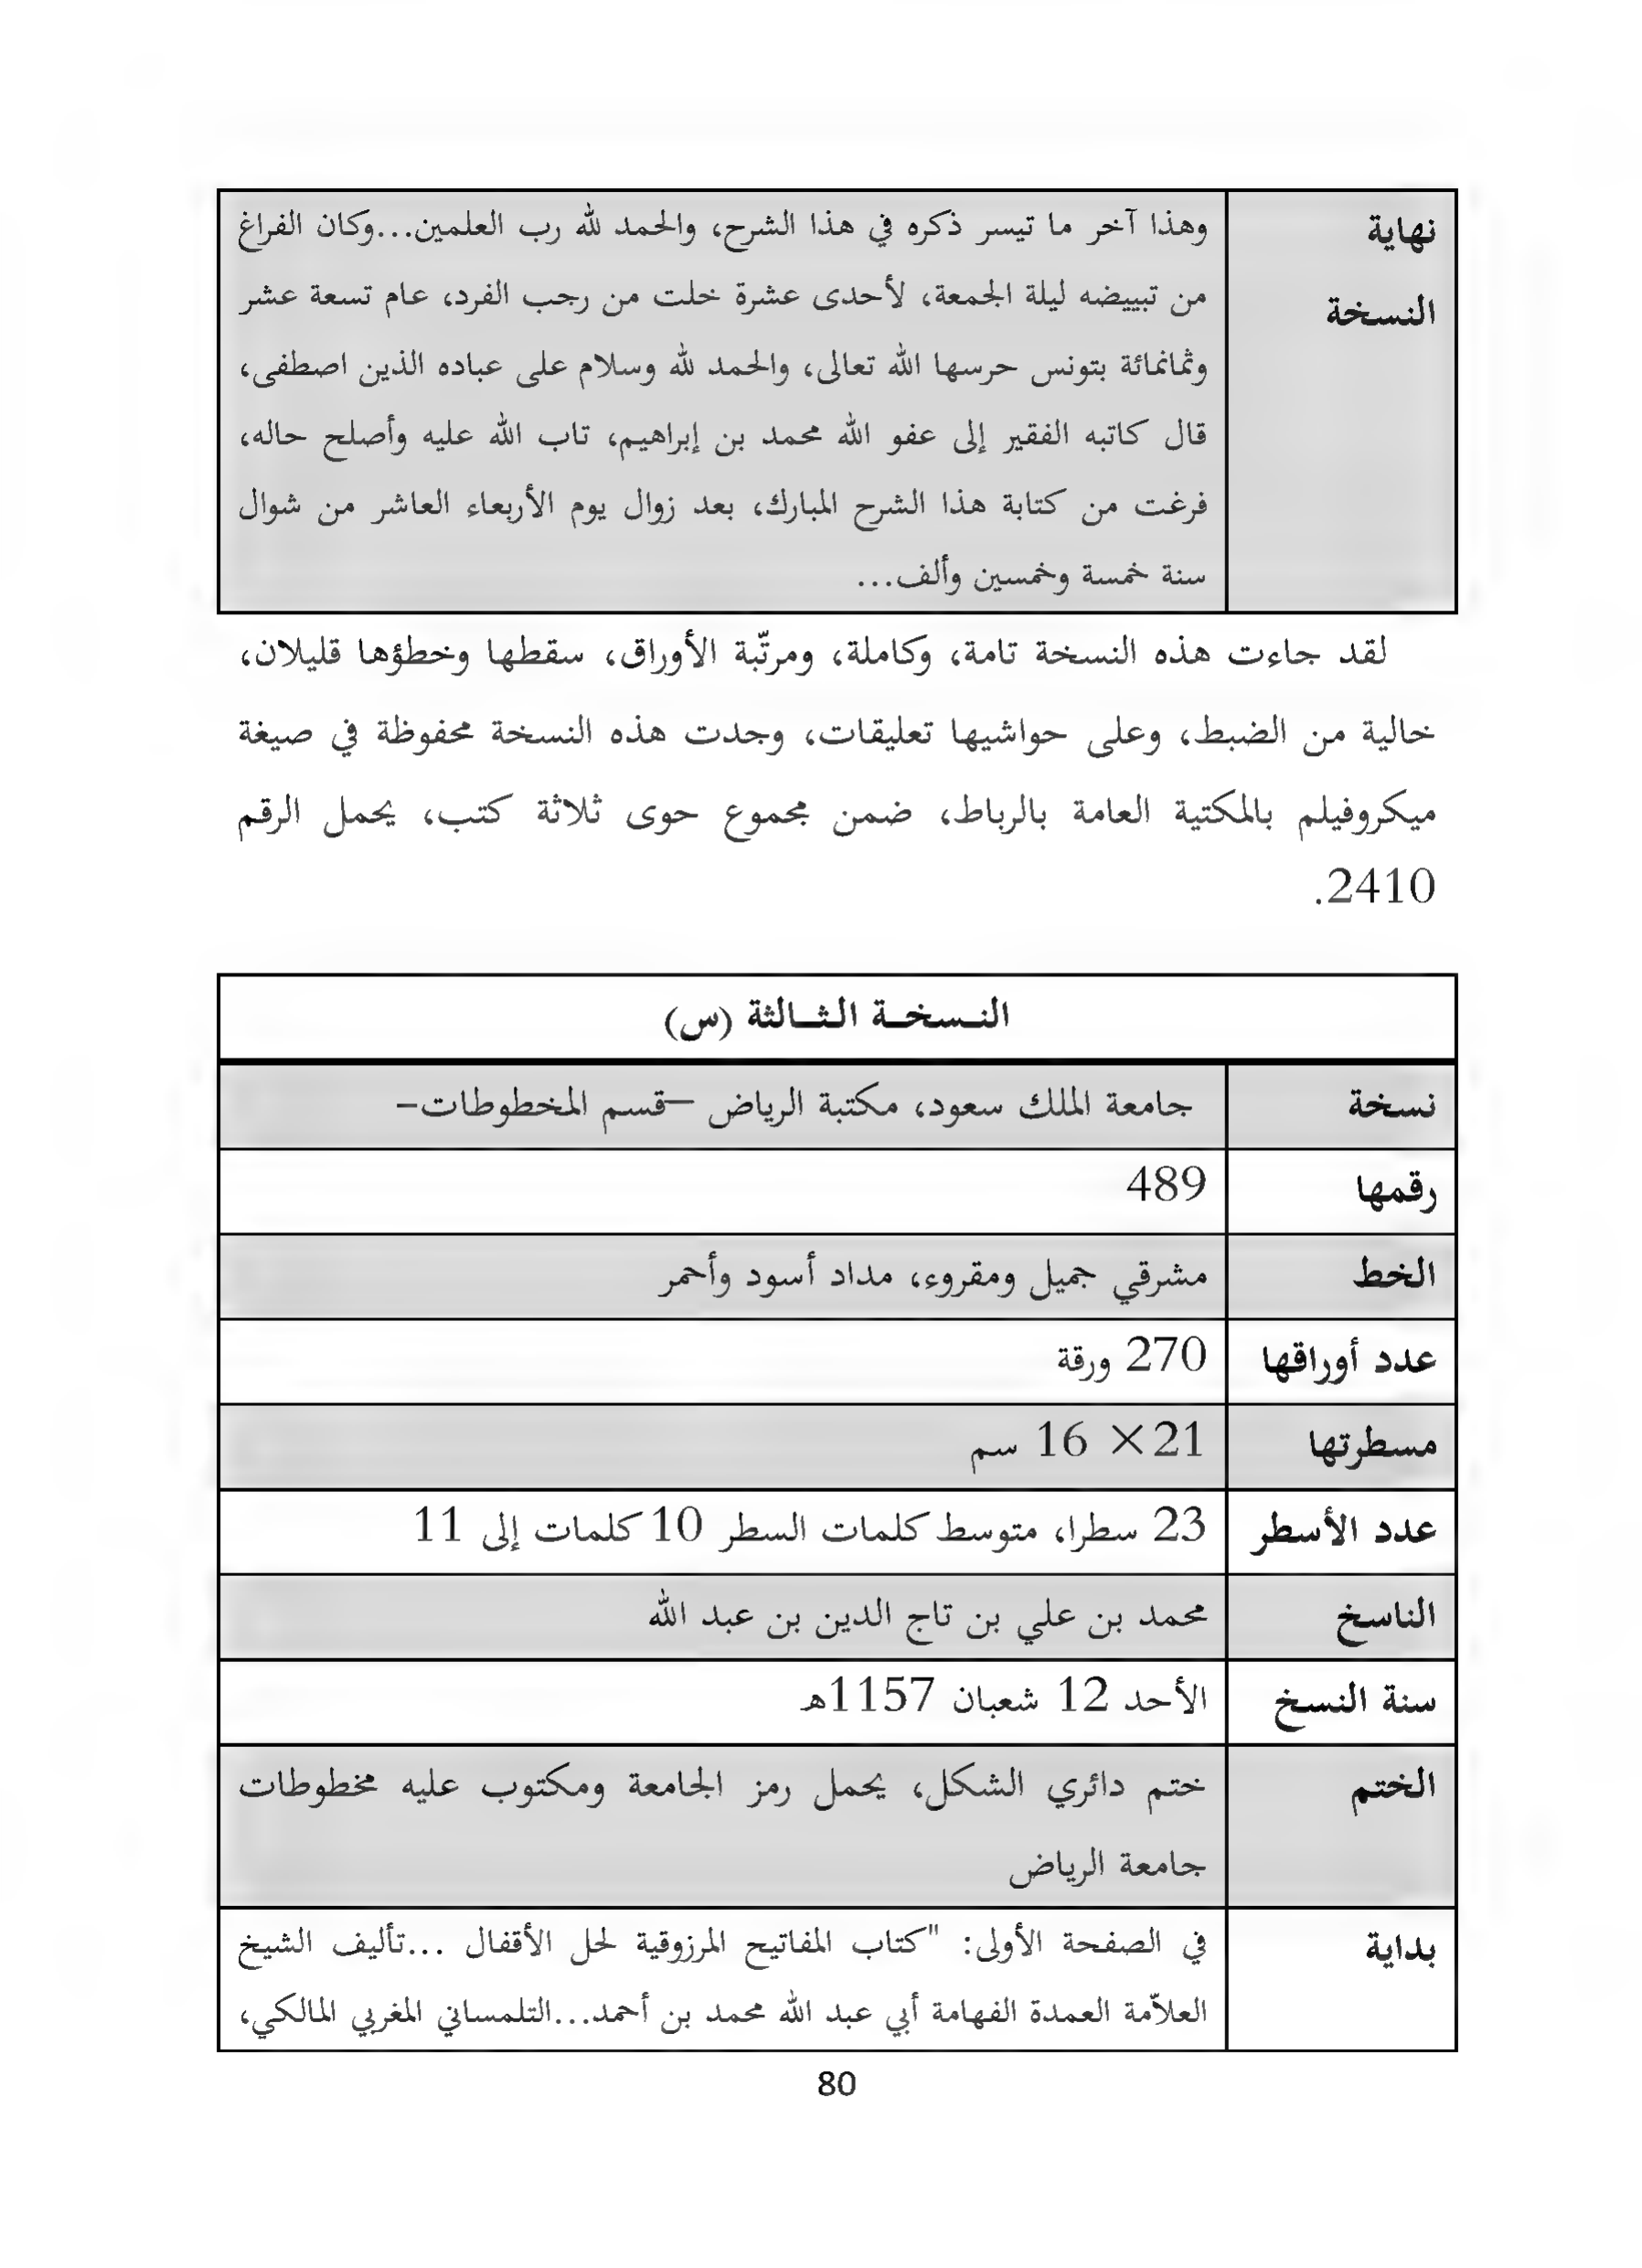 نهاية وهذا آخر ما تيسر ذكره في هذا الشرح، والحمد لله رب العلمين...وكان الفراغ
النسخة من تبييضه ليلة الجمعة، لأحدى عشرة خلت من رجب الفرد، عام تسعة عشر
وثمانمائة بتونس حرسها الله تعالى، والحمد لله وسلام على عباده الذين اصطفى،
قال كاتبه الفقير إلى عفو الله محمد بن إبراهيم، تاب الله عليه وأصلح حاله،
فرغت من كتابة هذا الشرح المبارك، بعد زوال يوم الأربعاء العاشر من شوال
سنة خمسة وخمسين وألف...
لقد جاءت هذه النسخة تامة، وكاملة، ومرتّبة الأوراق، سقطها وخطؤها قليلان،
خالية من الضبط، وعلى حواشيها تعليقات، وجدت هذه النسخة محفوظة في صيغة
ميكروفيلم بالمكتبة العامة بالرباط، ضمن مجموع حوى ثلاثة كتب، يحمل الرقم
2410.
النـسخـة الـثـالثة (س)
نسخة جامعة الملك سعود، مكتبة الرياض –قسم المخطوطات–
رقمها 489
الخط مشرقي جميل ومقروء، مداد أسود وأحمر
عدد أوراقها 270 ورقة
مسطرتها 21× 16 سم
عدد الأسطر 23 سطرا، متوسط كلمات السطر 10 كلمات إلى 11
الناسخ محمد بن علي بن تاج الدين بن عبد الله
سنة النسخ الأحد 12 شعبان 1157هـ
الختم ختم دائري الشكل، يحمل رمز الجامعة ومكتوب عليه مخطوطات
جامعة الرياض
بداية في الصفحة الأولى: "كتاب المفاتيح المرزوقية لحل الأقفال ...تأليف الشيخ
العلاّمة العمدة الفهامة أبي عبد الله محمد بن أحمد...التلمساني المغربي المالكي،
80